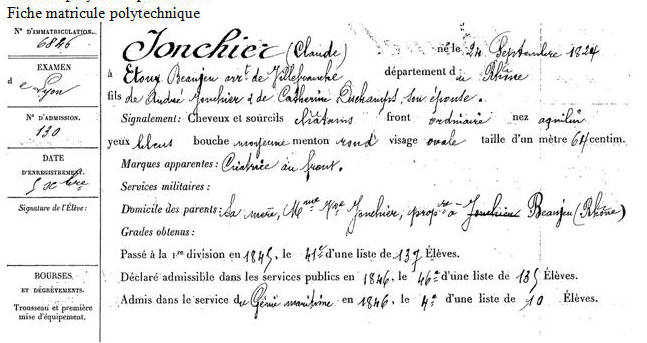 Fiche matricule polytechnique
N° D'IMMATRICULATION.
6846
EXAMEN
de Lyon
N° D'ADMISSION.
130
DATE
D'ENREGISTREMENT.
5 8bre
Signature de l'Élève:
BOURSES
ET DÉGRÈVEMENTS.
Trousseau et première
mise d'équipement.
Jonchier (Claude) né le 24 Septembre 1824
à Etoux Beaujeu arrt de Villefranche département du Rhône
fils de André Jonchier & de Catherine Duchamps, son épouse.
Signalement: Cheveux et sourcils châtains front ordinaire nez aquilin
yeux bleus bouche moyenne menton rond visage ovale taille d'un mètre 64 centim.
Marques apparentes: Cicatrice au front.
Services militaires:
Domicile des parents: Sa mère, Mme Vve Jonchier, propre à Jonchier Beaujeu (Rhône)
Grades obtenus:
Passé à la 1re division en 1845, le 41e d'une liste de 137 Élèves.
Déclaré admissible dans les services publics en 1846, le 46e d'une liste de 135 Élèves.
Admis dans le service du Génie maritime en 1846, le 4e d'une liste de 10 Élèves.